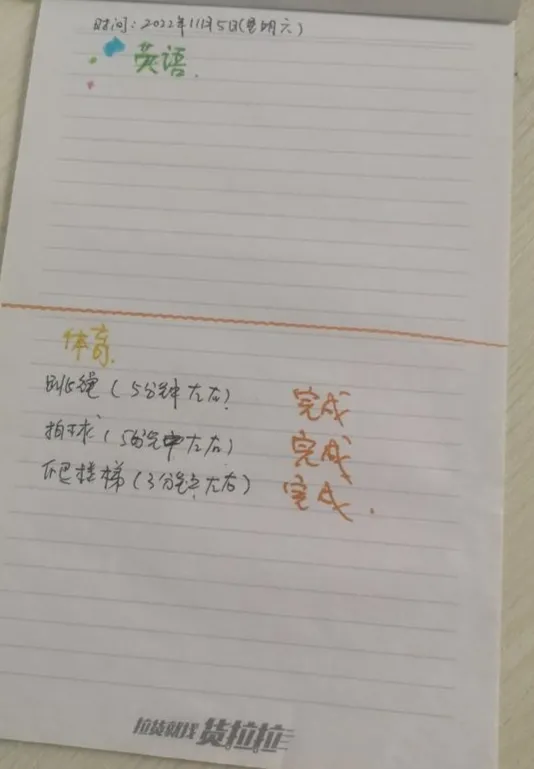 时间：2022年11月5日(星期六)
英语.
体育.
跳绳(5分钟左右) 完成
拍球(5分钟左右) 完成
爬楼梯(3分钟左右) 完成.
拉货就找 货拉拉